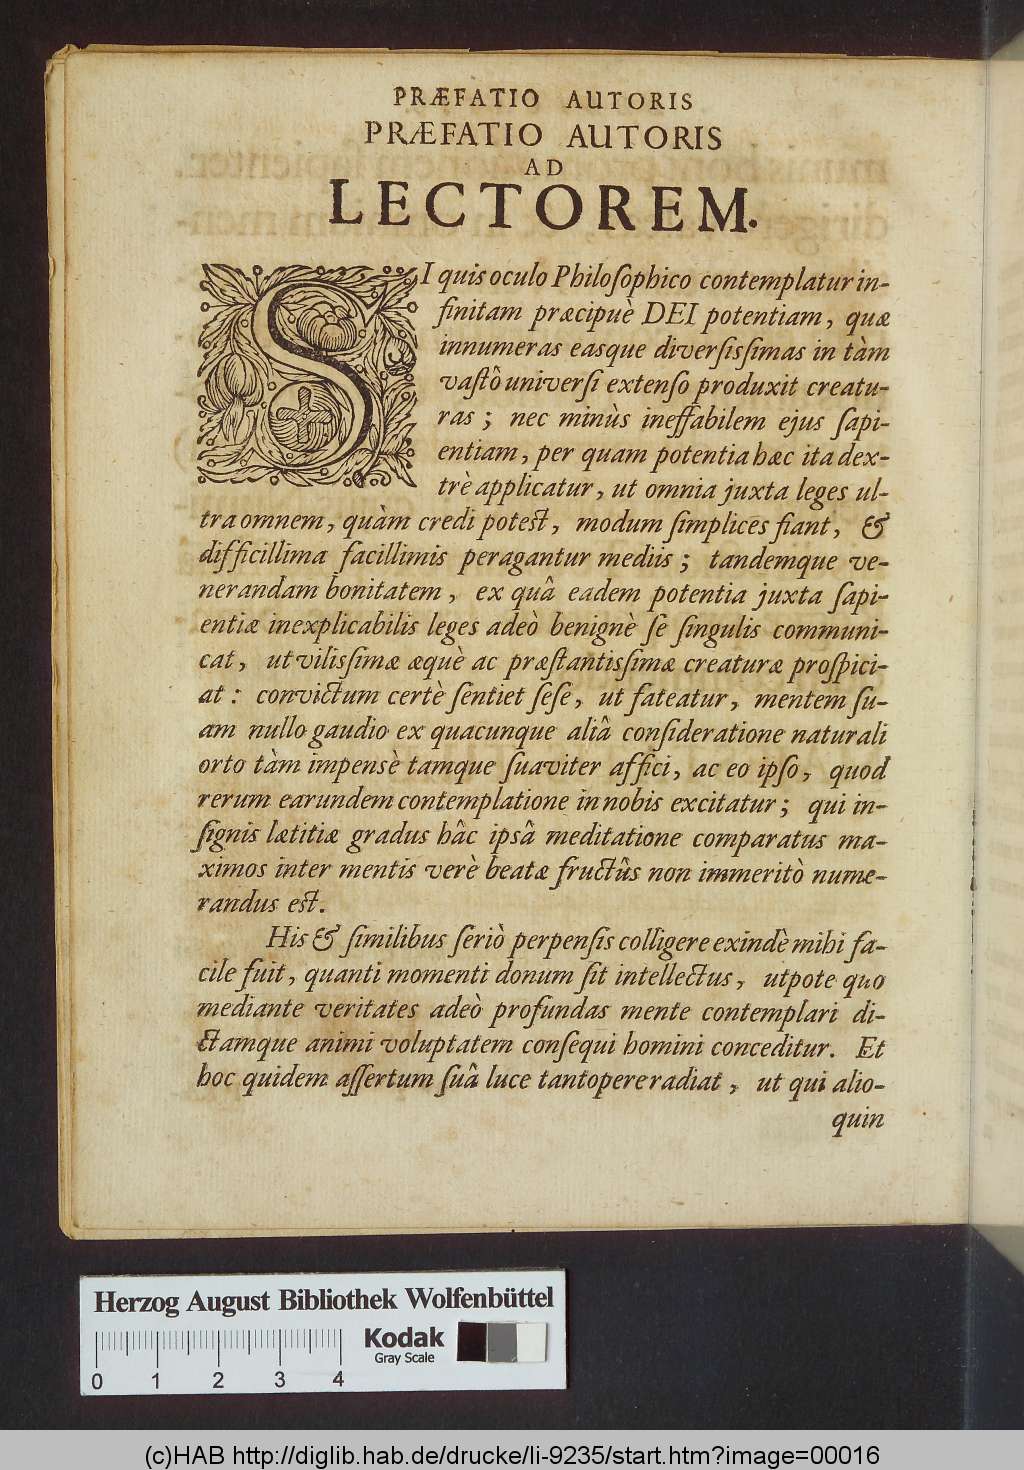 PRÆFATIO AUTORIS
PRÆFATIO AUTORIS
AD
LECTOREM.
SI quis oculo Philoſophico contemplatur in-
finitam præcipuè DEI potentiam, quæ
innumeras easque diverſiſſimas in tàm
vaſtô univerſi extenſo produxit creatu-
ras; nec minùs ineffabilem ejus ſapi-
entiam, per quam potentia hæc ita dex-
trè applicatur, ut omnia juxta leges ul-
tra omnem, quàm credi poteſt, modum ſimplices fiant, &
difficillima facillimis peragantur mediis; tandemque ve-
nerandam bonitatem, ex quâ eadem potentia juxta ſapi-
entiæ inexplicabilis leges adeò benignè ſe ſingulis communi-
cat, ut viliſſimæ æquè ac præſtantiſſimæ creaturæ proſpici-
at: convictum certè ſentiet ſeſe, ut fateatur, mentem ſu-
am nullo gaudio ex quacunque aliâ conſideratione naturali
orto tàm impensè tamque ſuaviter affici, ac eo ipſo, quod
rerum earundem contemplatione in nobis excitatur; qui in-
ſignis lætitiæ gradus hâc ipsâ meditatione comparatus ma-
ximos inter mentis verè beatæ fructûs non immeritò nume-
randus eſt.
His & ſimilibus ſeriò perpenſis colligere exindè mihi fa-
cile fuit, quanti momenti donum ſit intellectus, utpote quo
mediante veritates adeò profundas mente contemplari di-
ctamque animi voluptatem conſequi homini conceditur. Et
hoc quidem aſſertum ſuâ luce tantopere radiat, ut qui alio-
quin
Herzog August Bibliothek Wolfenbüttel
Kodak
Gray Scale
0 1 2 3 4
(c)HAB http://diglib.hab.de/drucke/li-9235/start.htm?image=00016